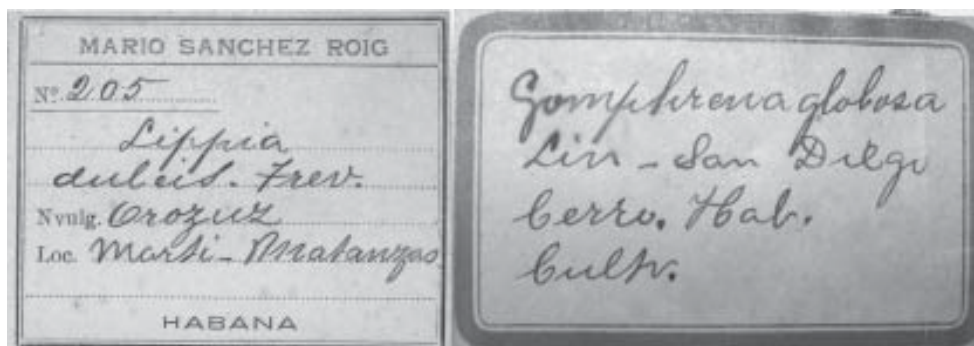 MARIO SANCHEZ ROIG
Nº. 205
Lippia
dulcis. Trev.
Nvulg. Orozuz
Loc. Marti - Matanzas
HABANA
Gomphrena globosa
Lin - San Diego
Cerro. Hab.
Cultv.